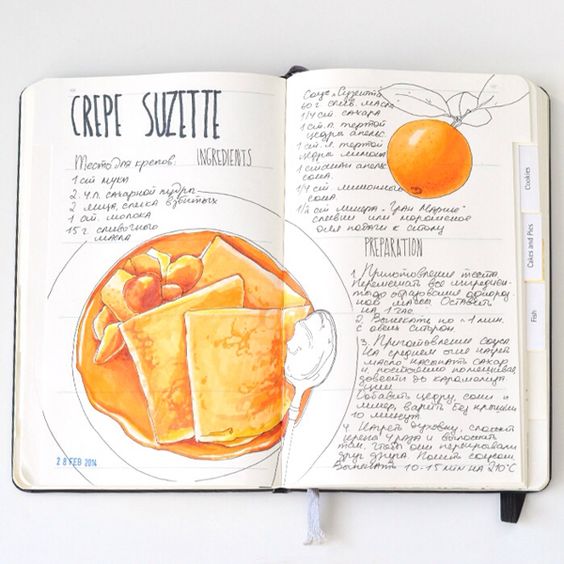 CREPE SUZETTE
INGREDIENTS
Тесто для крепов:
1 ст мука
2 ч.л. сахарной пудры
2 яйца, слегка взбитых
1 ст. молока
15 г сливочного
масла
28 FEB 2014
Соус "Сузетта"
60 г слив. масла
1/4 ст сахара
1 ст. л. тертой
цедра апельс.
1 ст. л. тертой
цедра лимона
1 стакан апельс
сока.
1/4 ст лимонного
сока
1/2 ст ликера "Гран Марнье"
сливки или мороженое
для подачи к столу
PREPARATION
1. Приготовление теста
перемешать все ингредиен-
ты до образования однород
ной массы. Оставить
на 1 час.
2. Выпекать по ~ 1 мин.
с обеих сторон.
3. Приготовление соуса
На среднем огне нагреть
масло насыпать сахар
и, постоянно помешивая,
довести до карамелиза
ции
Добавить цедру, соки и
ликер, варить без крышки
10 минут
4. Нагреть духовку, сложить
крепа 4 раза и выложить
так, чтобы они перекрывали
друг друга. Полить соусом.
Выпекать 10-15 мин на 210°C
Cookies
Cakes and Pies
Fish